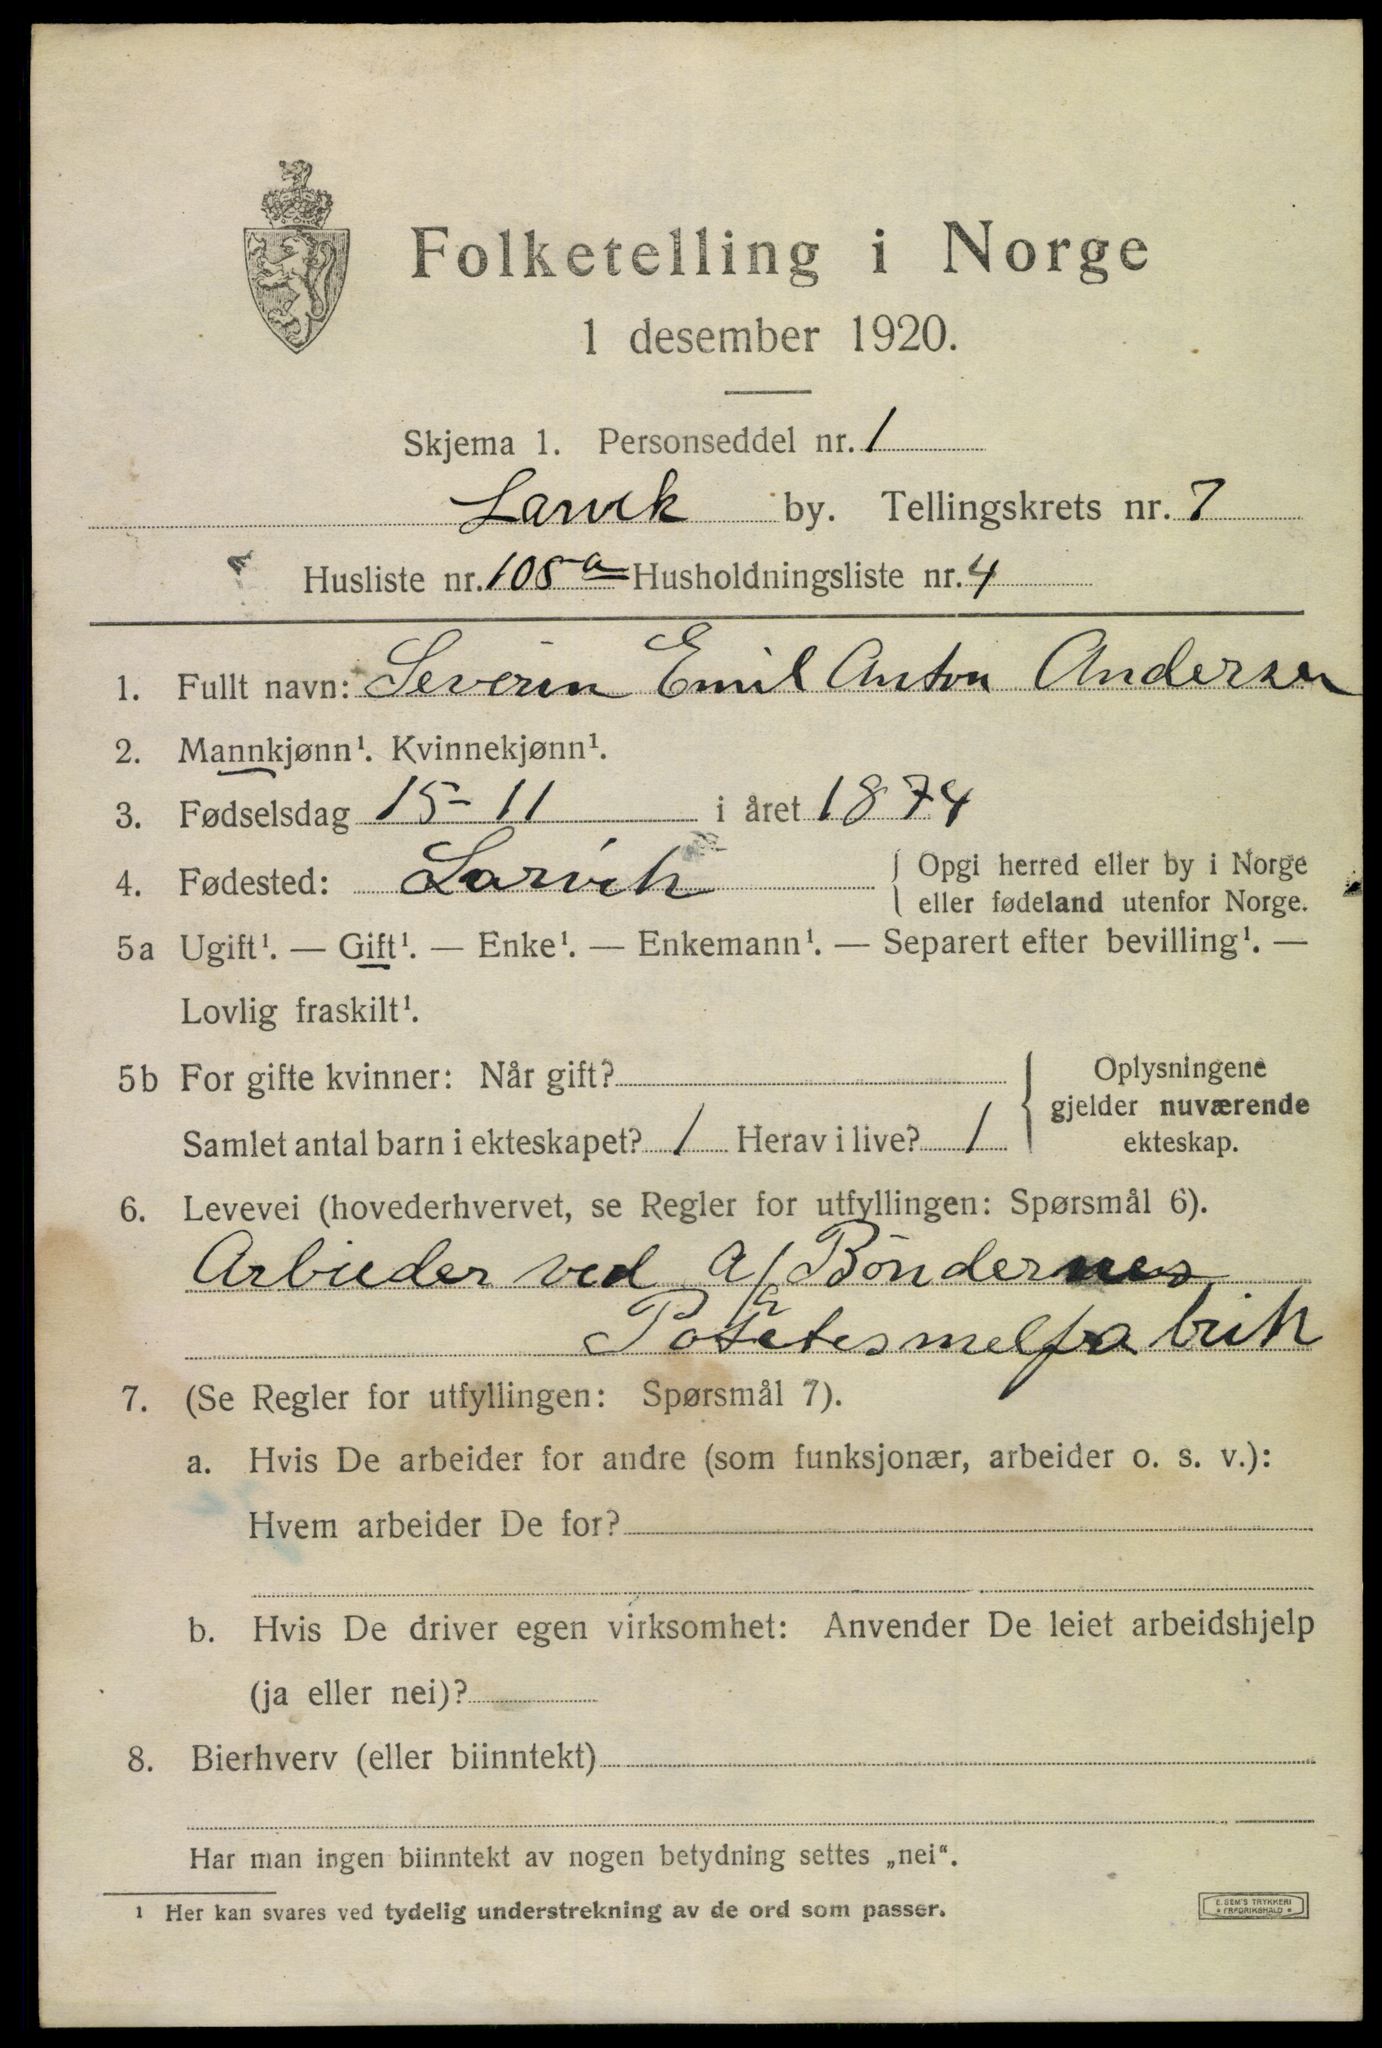 Folketelling i Norge
1 desember 1920.
Skjema 1. Personseddel nr. 1
Larvik by. Tellingskrets nr. 7
Husliste nr. 105 a Husholdningsliste nr. 4
1. Fullt navn: Severin Emil Anton Andersen
2. Mannkjønn¹. Kvinnekjønn¹.
3. Fødselsdag 15-11 i året 1874
4. Fødested: Larvik { Opgi herred eller by i Norge
eller fødeland utenfor Norge.
5a Ugift¹. — Gift¹. — Enke¹. — Enkemann¹. — Separert efter bevilling¹. —
Lovlig fraskilt¹.
5b For gifte kvinner: Når gift?
Samlet antal barn i ekteskapet? 1 Herav i live? 1
Oplysningene
gjelder nuværende
ekteskap.
6. Levevei (hovederhvervet, se Regler for utfyllingen: Spørsmål 6).
Arbieder ved A/S Bøndernes
Potetesmelfabrik
7. (Se Regler for utfyllingen: Spørsmål 7).
a. Hvis De arbeider for andre (som funksjonær, arbeider o. s. v.):
Hvem arbeider De for?
b. Hvis De driver egen virksomhet: Anvender De leiet arbeidshjelp
(ja eller nei)?
8. Bierhverv (eller biinntekt)
Har man ingen biinntekt av nogen betydning settes „nei“.
¹ Her kan svares ved tydelig understrekning av de ord som passer.
E. SEM'S TRYKKERI
* FREDRIKSHALD *